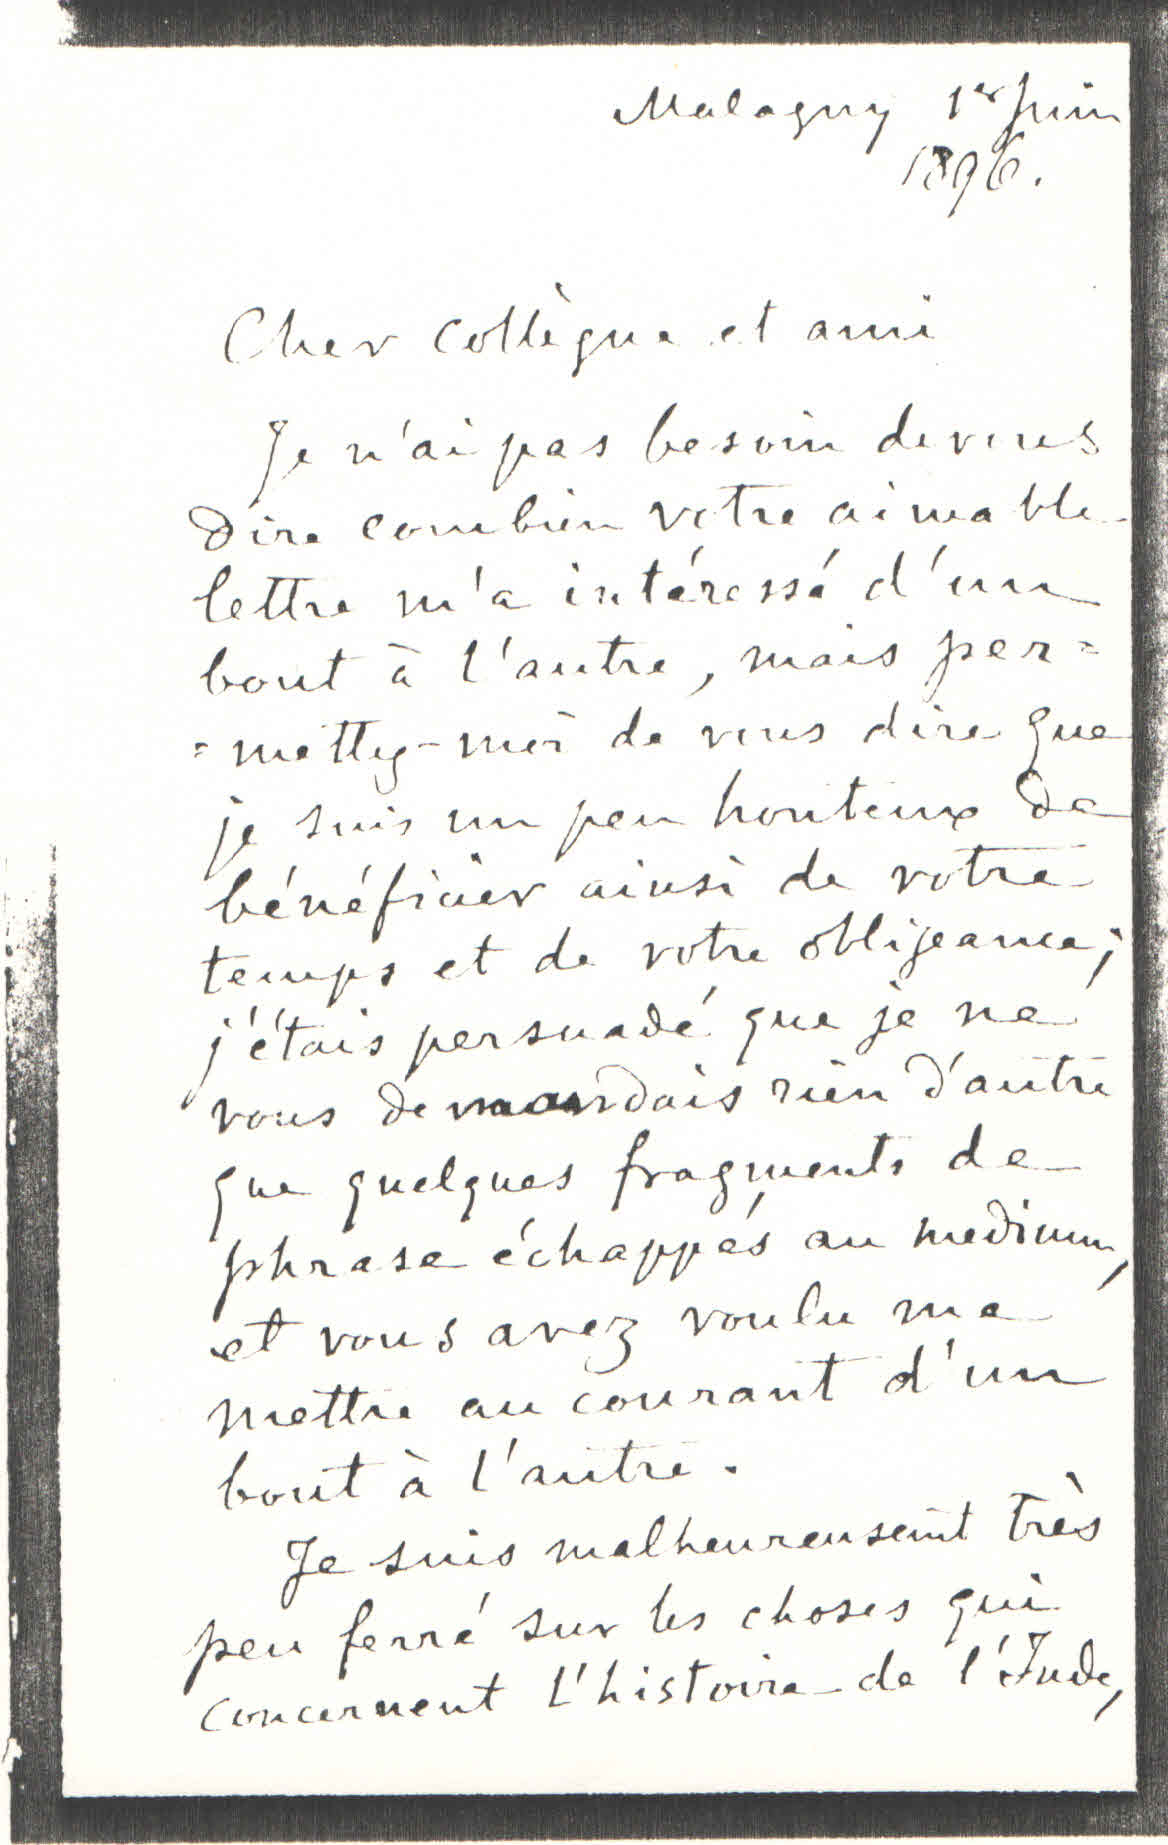 Malagny 1er Juin
1896.
Cher Collègue et ami
Je n'ai pas besoin de vous
dire combien votre aimable
lettre m'a intéressé d'un
bout à l'autre, mais per=
=mettez-moi de vous dire que
je suis un peu honteux de
bénéficier ainsi de votre
temps et de votre obligeance;
j'étais persuadé que je ne
vous demandais rien d'autre
que quelques fragments de
phrase échappés au medium,
et vous avez voulu me
mettre au courant d'un
bout à l'autre.
Je suis malheureusemt très
peu ferré sur les choses qui
concernent l'histoire de l'Inde,